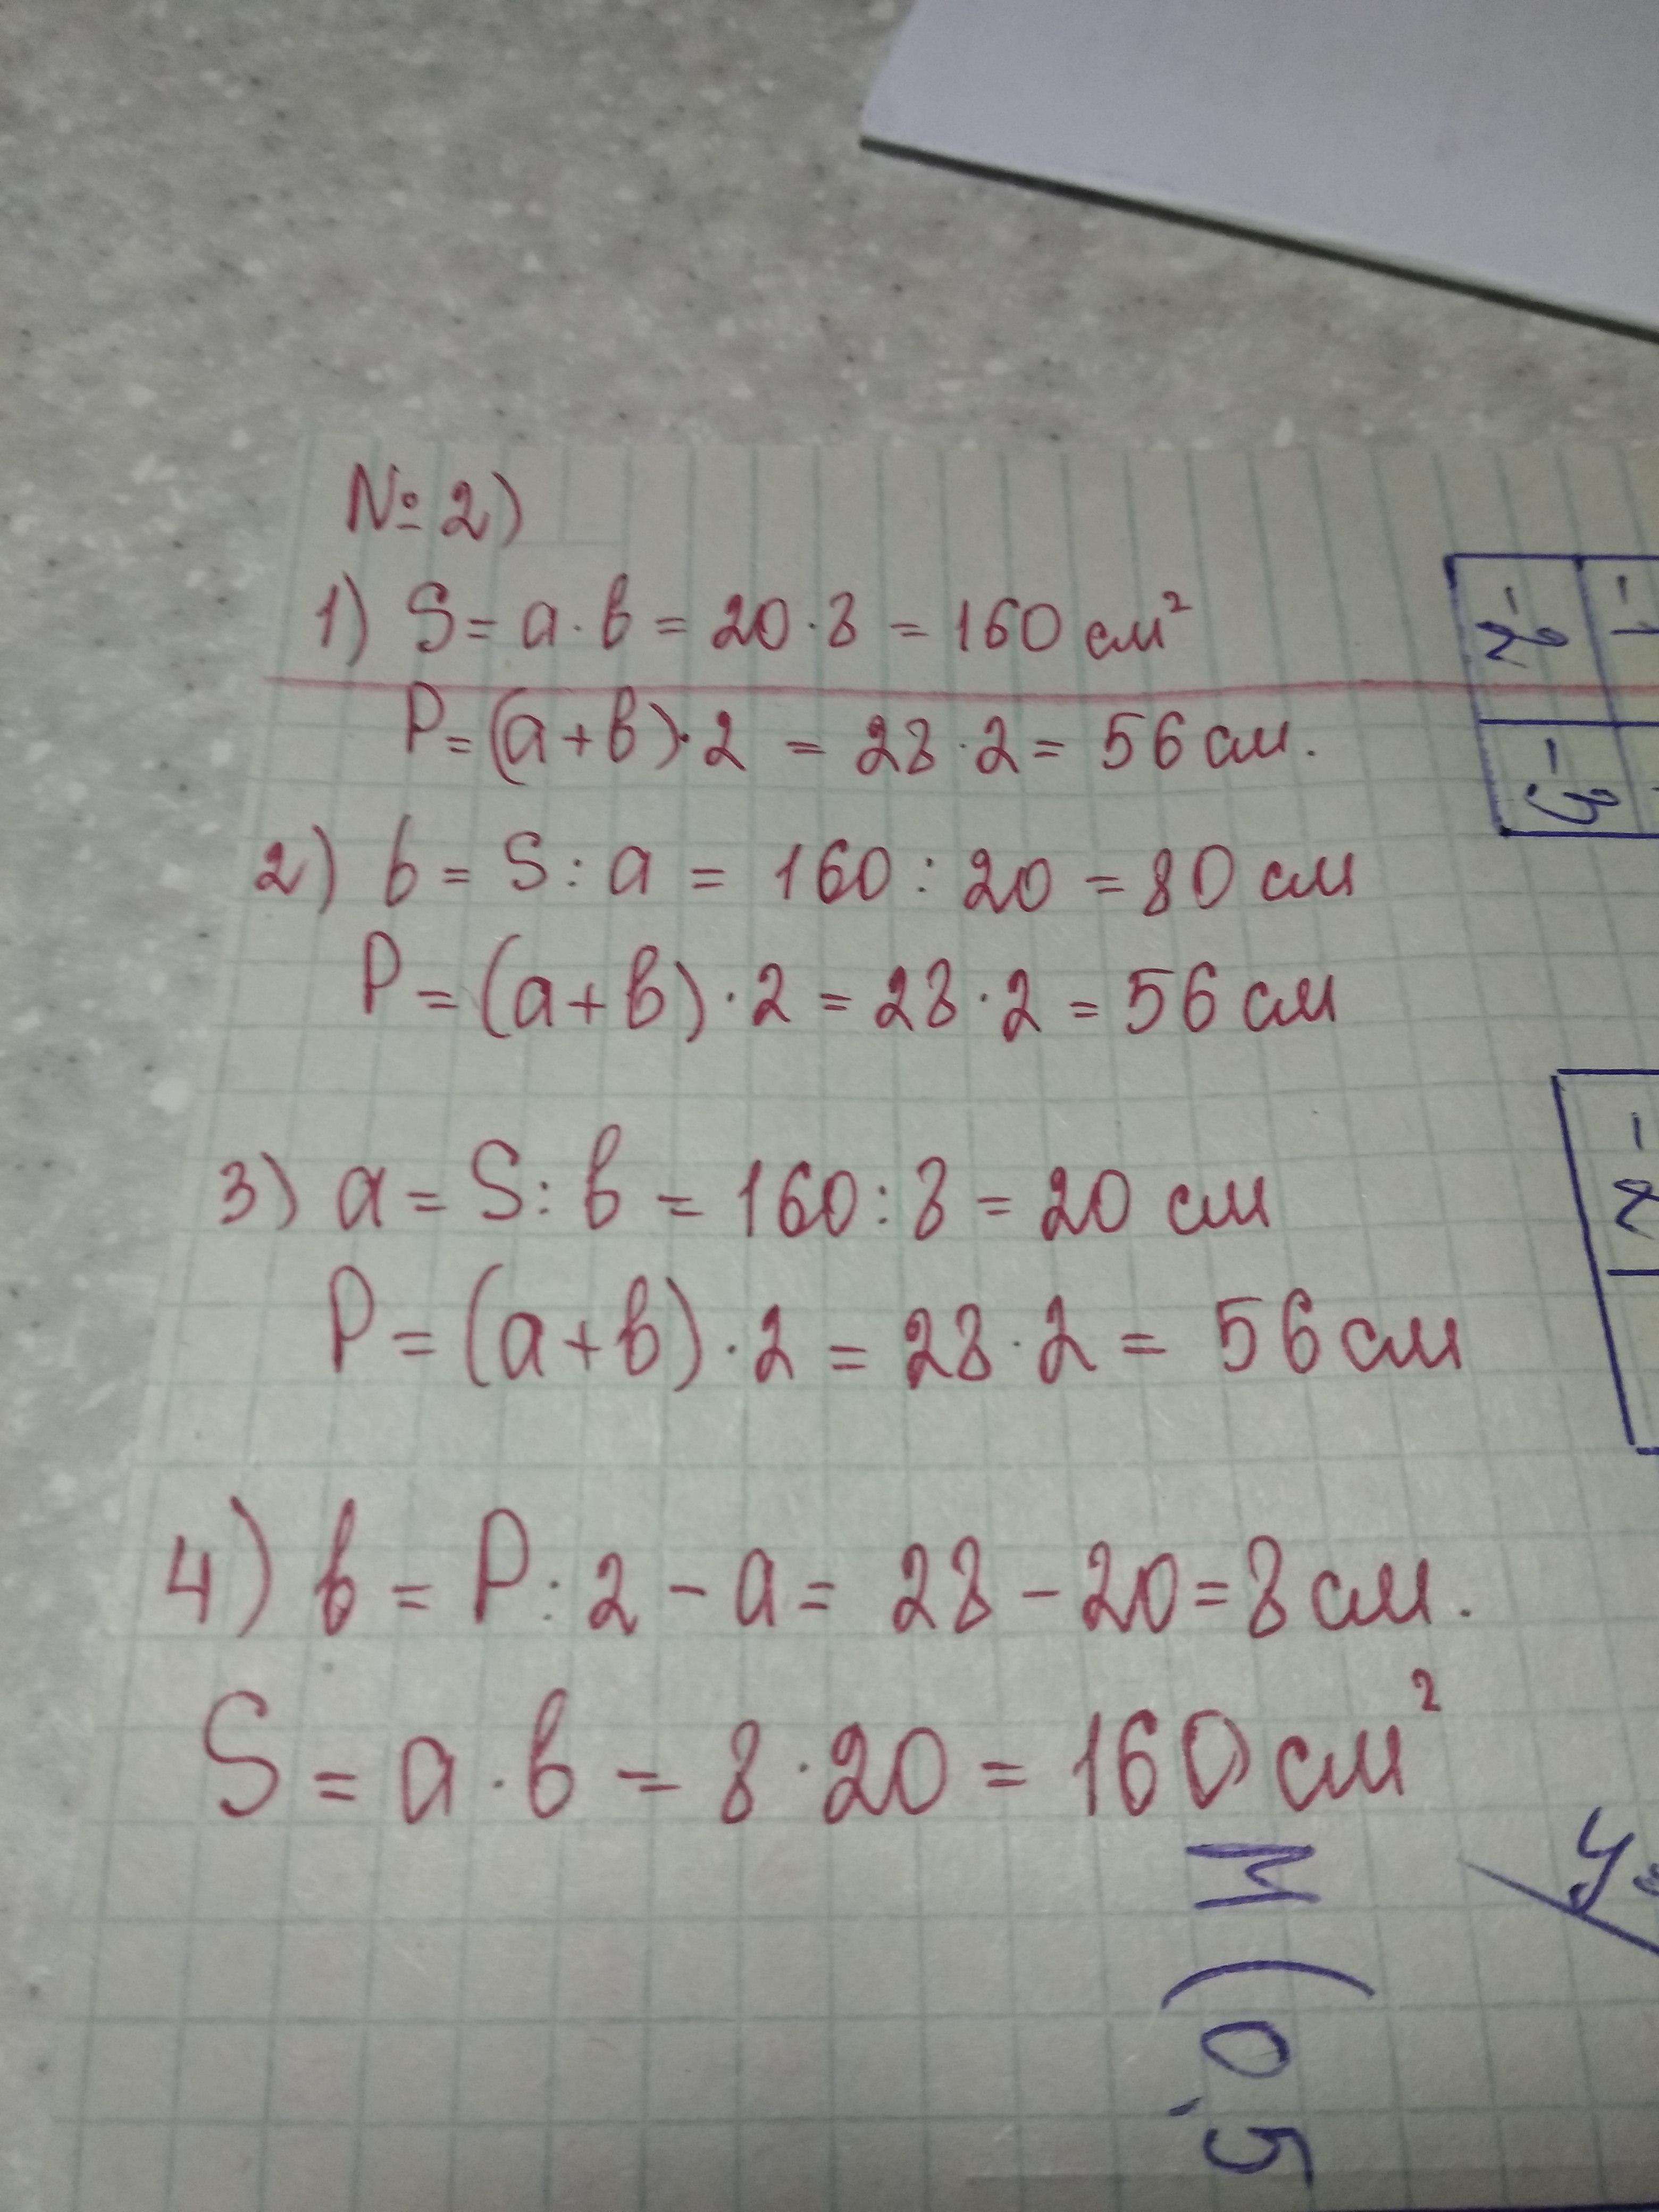 № 2)
1) S = a · b = 20 · 8 = 160 см²
P = (a + b) · 2 = 28 · 2 = 56 см.
2) b = S : a = 160 : 20 = 80 см
P = (a + b) · 2 = 28 · 2 = 56 см
3) a = S : b = 160 : 8 = 20 см
P = (a + b) · 2 = 28 · 2 = 56 см
4) b = P : 2 - a = 28 - 20 = 8 см.
S = a · b = 8 · 20 = 160 см²
-2 -1
-3
-2
y=
M (0,5